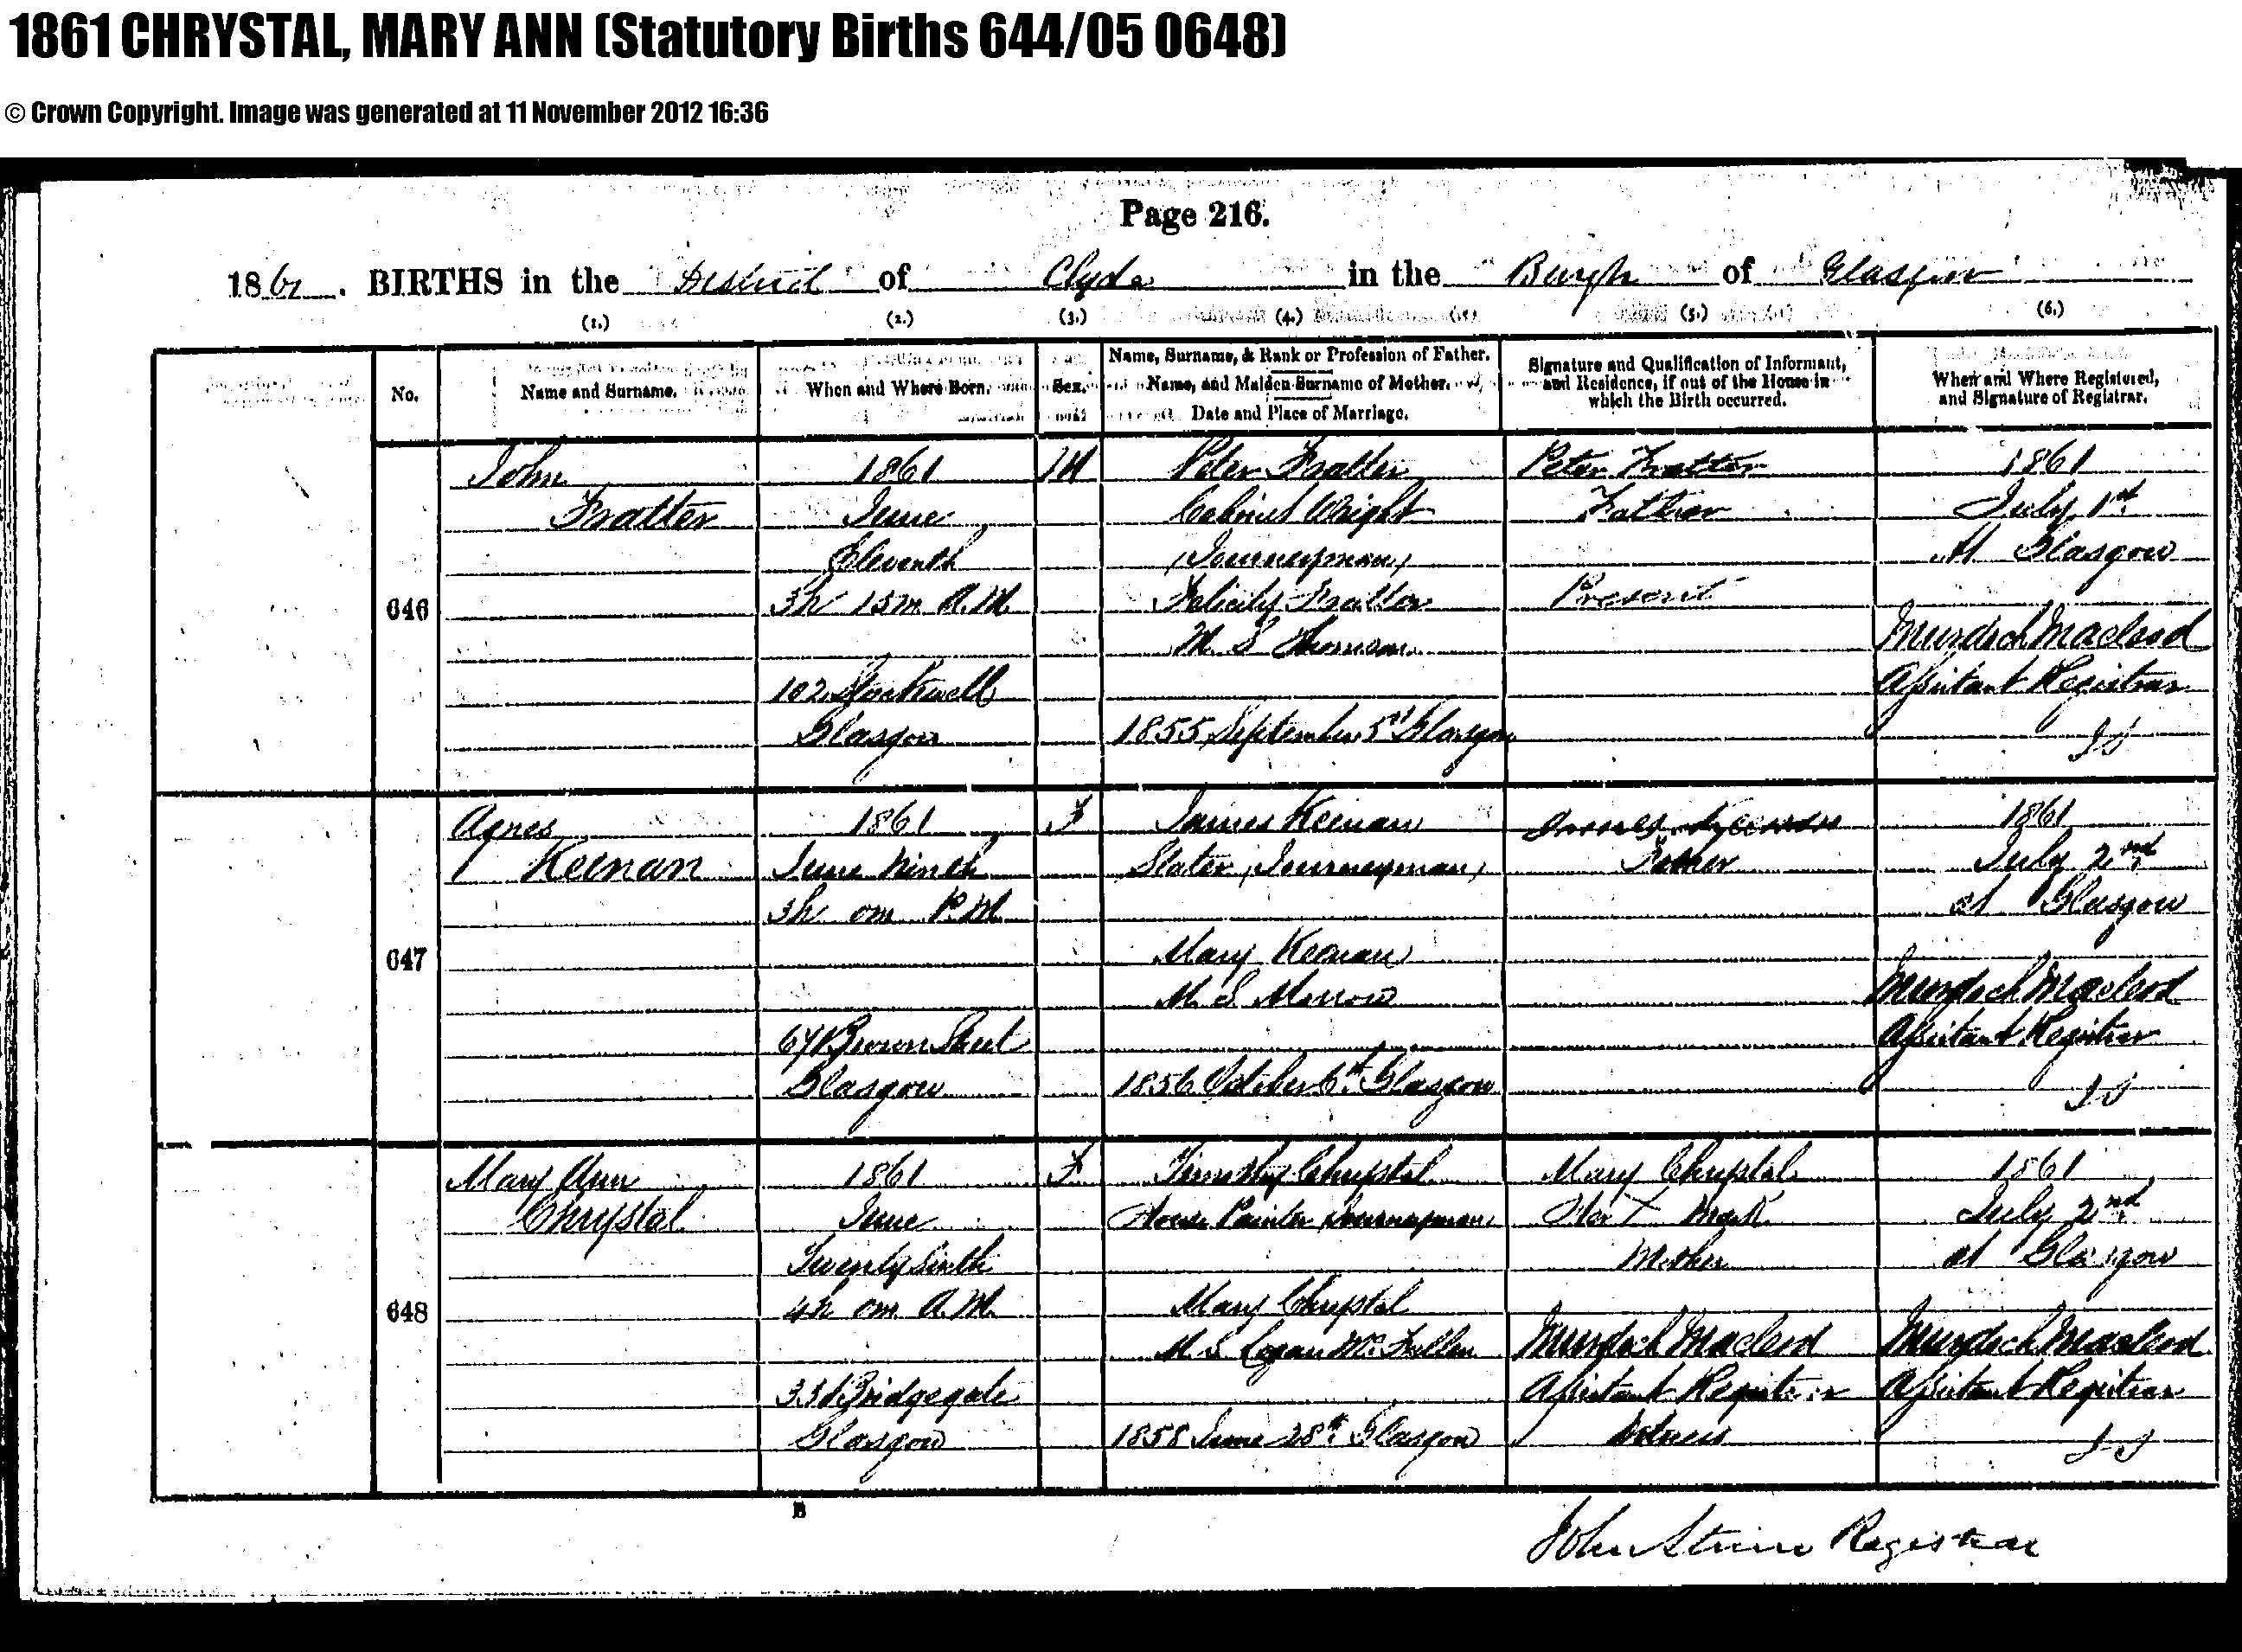 1861 CHRYSTAL, MARY ANN (Statutory Births 644/05 0648)
© Crown Copyright. Image was generated at 11 November 2012 16:36
Page 216.
1861. BIRTHS in the District of Clyde in the Burgh of Glasgow
(1.) (2.) (3.) (4.) (5.) (6.)
No.
Name and Surname.
When and Where Born.
Sex.
Name, Surname, & Rank or Profession of Father.
Name, and Maiden Surname of Mother.
Date and Place of Marriage.
Signature and Qualification of Informant,
and Residence, if out of the House in
which the Birth occurred.
When and Where Registered,
and Signature of Registrar.
646
John
Fratter
1861
June
Eleventh
3h 15m A.M.
102 Stockwell
Glasgow
M
Peter Fratter
Cabinet Wright
(Journeyman)
Felicity Fratter
M. S. Thomson
1855 September 5th Glasgow
Peter Fratter
Father
Present
1861
July 1st
At Glasgow
Murdoch Macleod
Assistant Registrar
J S
647
Agnes
Keenan
1861
June Ninth
3h 0m P.M.
Brown Street
Glasgow
F
James Keenan
Slater (Journeyman)
Mary Keenan
M. S. Morrow
1856 October 6th Glasgow
James Keenan
Father
1861
July 2nd
at Glasgow
Murdoch Macleod
Assistant Registrar
J S
648
Mary Ann
Chrystal
1861
June
Twenty Sixth
4h 0m A.M.
Bridgegate
Glasgow
F
Timothy Chrystal
House Painter (Journeyman)
Mary Chrystal
M. S. Logan
1858 June 28th Glasgow
Mary Chrystal
Her X Mark
Mother
Murdoch Macleod
Assistant Registrar
Witness
1861
July 2nd
at Glasgow
Murdoch Macleod
Assistant Registrar
J S
B
John Registrar